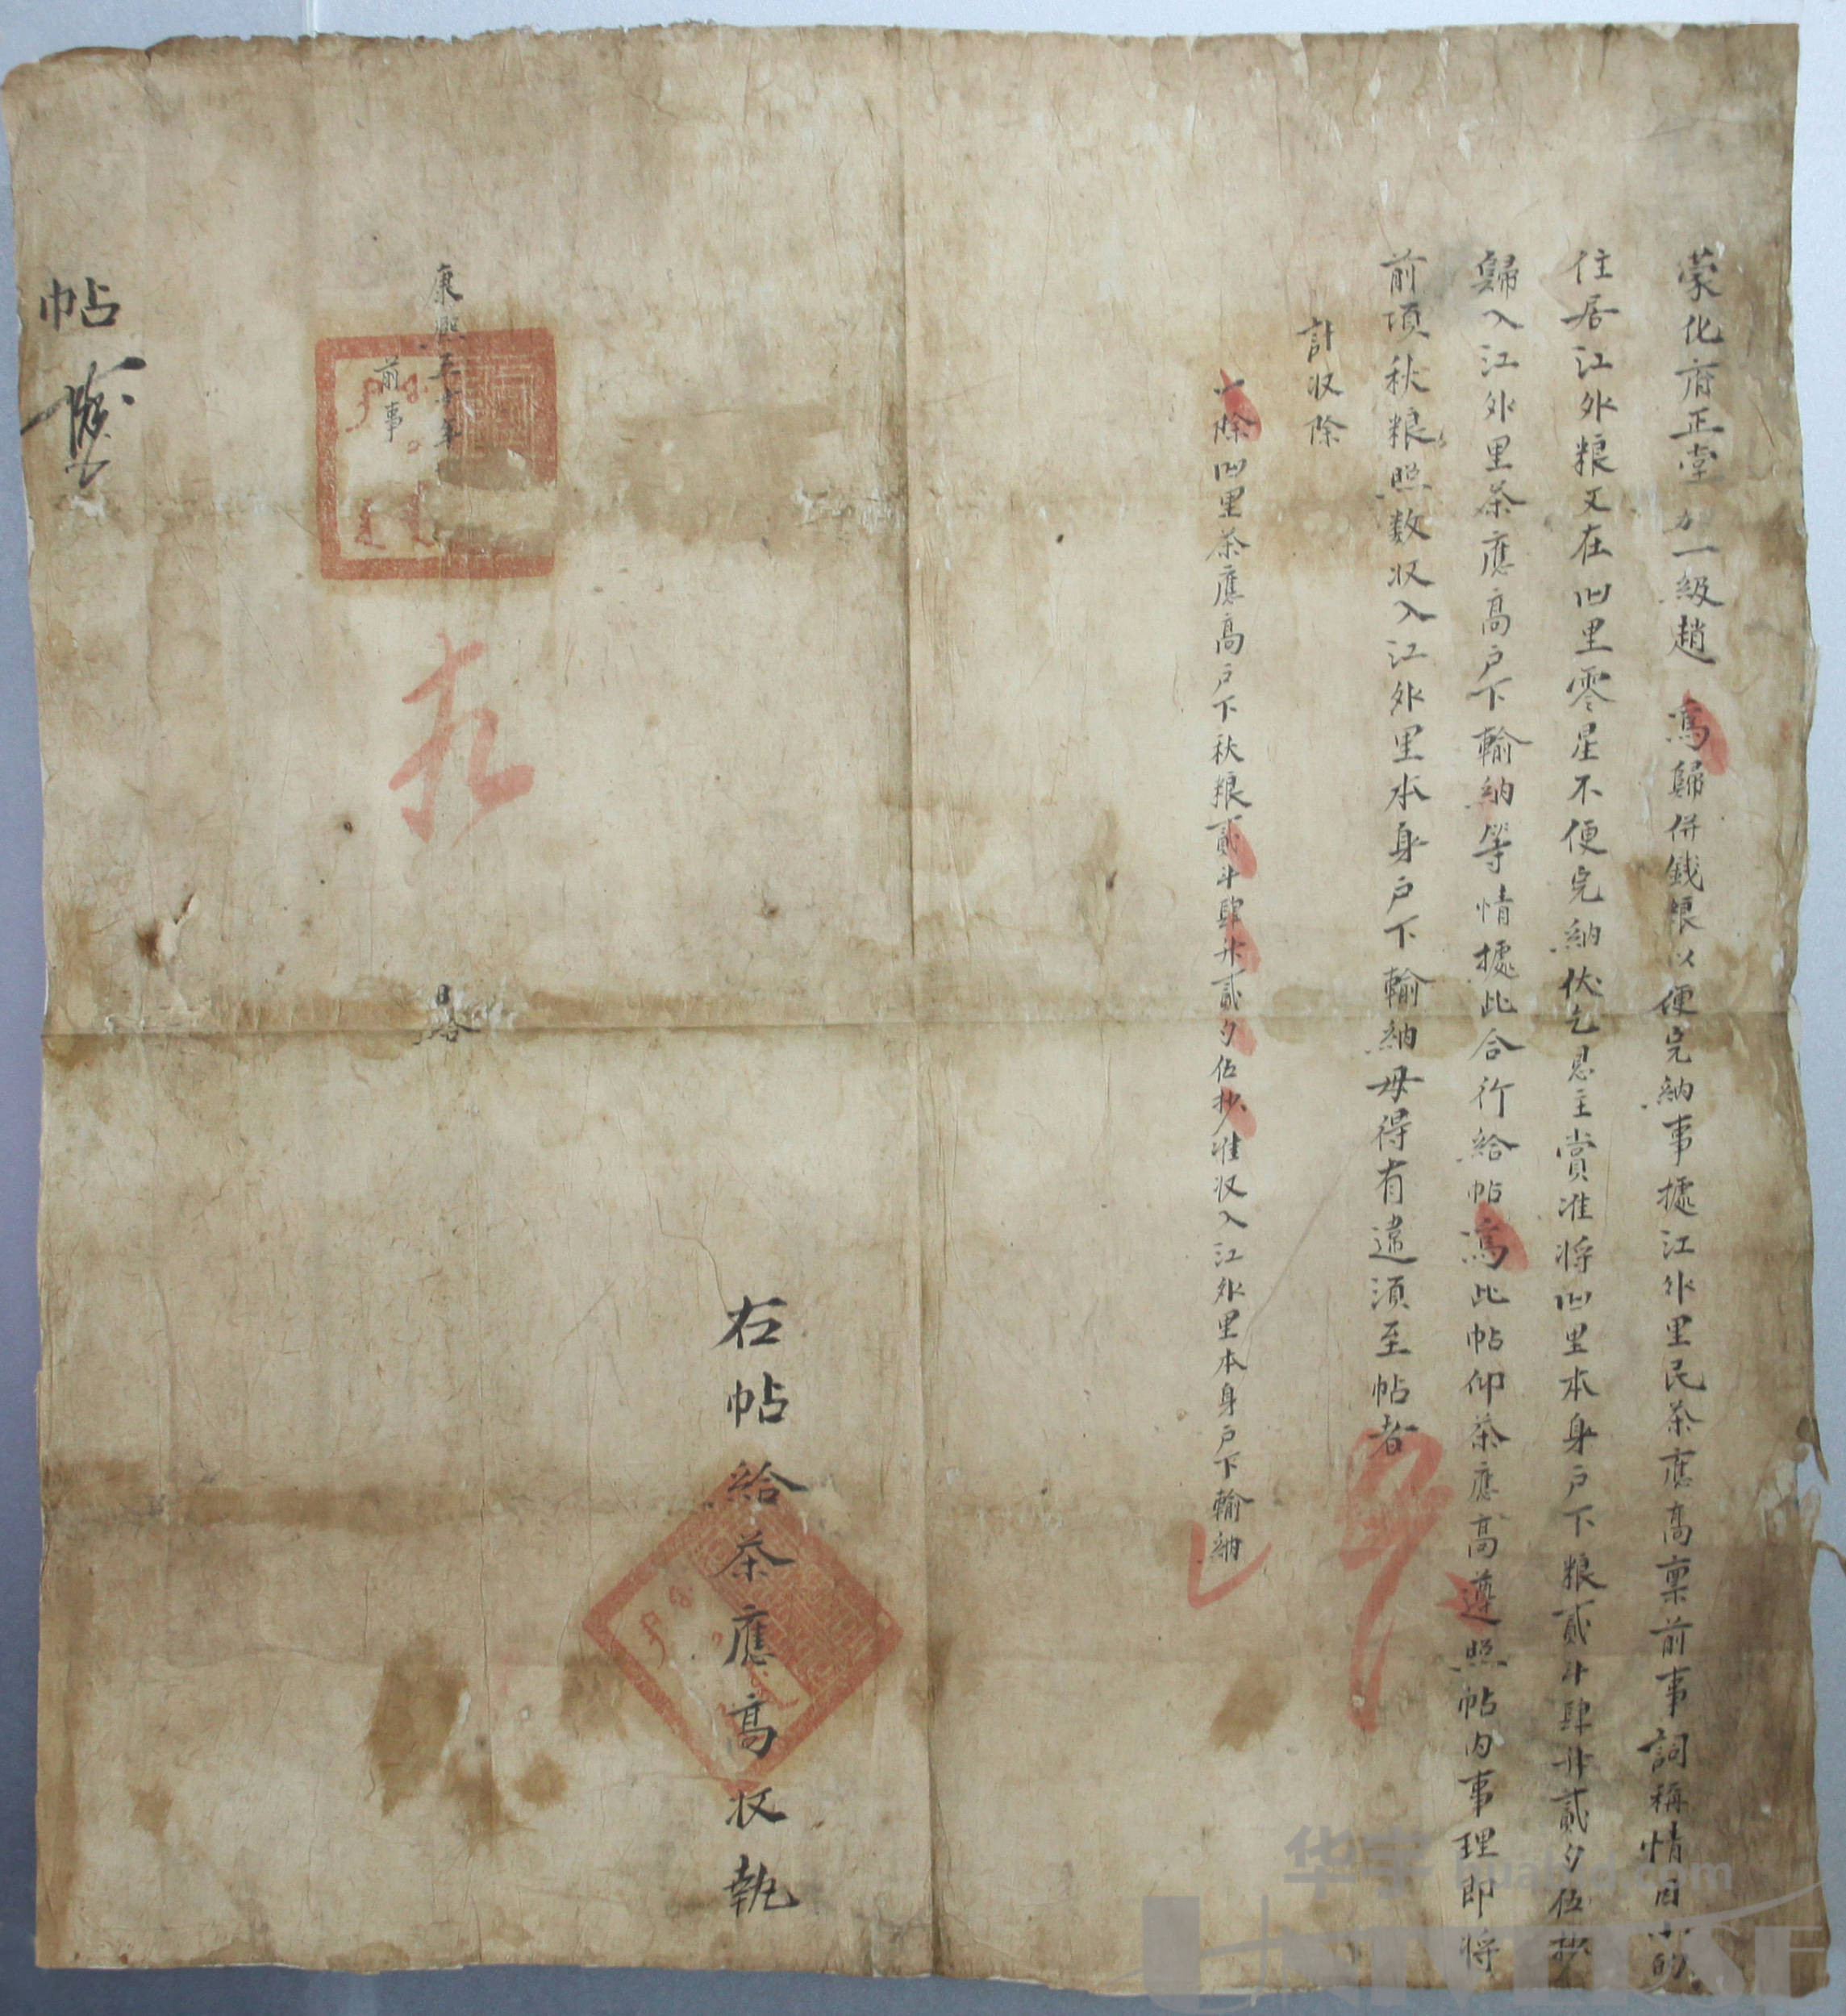 蒙化府正堂加一級趙 為歸併錢粮以便完納事據江外里民茶應高稟前事詞稱情因小的
住居江外粮又在凹里零星不便完納伏乞恩主賞准将凹里本身户下粮貳斗肆升貳夕伍抄
歸入江外里茶應高户下輸納等情據此合行給帖為此帖仰茶應高遵照帖内事理即将
前項秋粮照数収入江外里本身户下輸納毋得有違須至帖者
計収除
一除凹里茶應高户下秋粮貳斗肆升貳夕伍抄准収入江外里本身户下輸納
右帖給茶應高収執
康熙五十年
日給
前事
帖
华宇 huabid.com
UNIVERSE